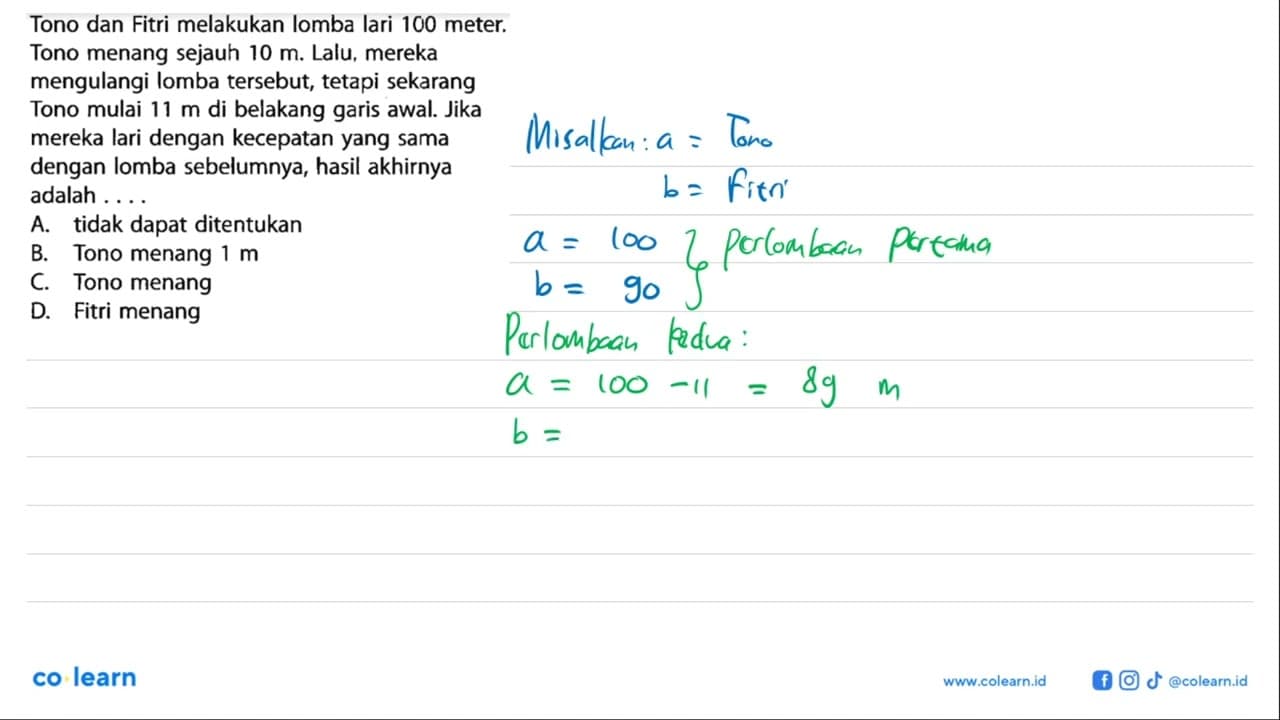 Tono dan Fitri melakukan lomba lari 100 meter.
Tono menang sejauh 10 m. Lalu, mereka
mengulangi lomba tersebut, tetapi sekarang
Tono mulai 11 m di belakang garis awal. Jika
mereka lari dengan kecepatan yang sama
dengan lomba sebelumnya, hasil akhirnya
adalah . . . .
A. tidak dapat ditentukan
B. Tono menang 1 m
C. Tono menang
D. Fitri menang
Misalkan: a = Tono
b = Fitri
a = 100 } Perlombaan Pertama
b = 90
Perlombaan kedua:
a = 100 - 11 = 89 m
b =
co learn
www.colearn.id
@colearn.id